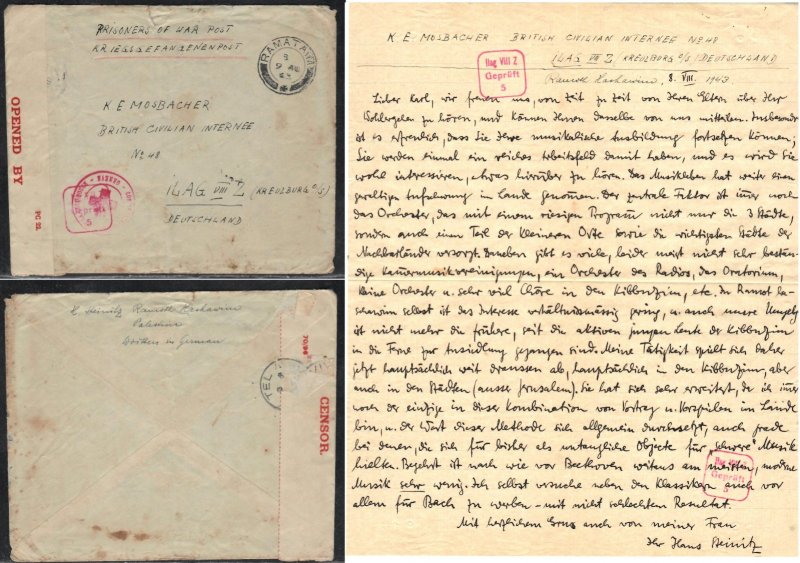 PRISONERS OF WAR POST
KRIEGSGEFANGENENPOST
RAMATAYIM
9 AU
43
OPENED BY
PC 22.
K E MOSBACHER
BRITISH CIVILIAN INTERNEE
No 48
ILAG VIII Z (KREUZBURG O/S)
DEUTSCHLAND
Geprüft
5
H Steinitz Ramoth Hashawim
Palestine
Written in German
TEL
CENSOR.
K. E. MOSBACHER BRITISH CIVILIAN INTERNEE No 48
ILAG VIII Z KREUZBURG O/S (DEUTSCHLAND
Ilag VIII Z
Geprüft
5
Ramoth Hashawim, 8. VIII. 1943
Lieber Karl, wir freuen uns, von Zeit zu Zeit von Ihren Eltern über Ihr
Wohlergehen zu hören, und können Ihnen dasselbe von uns mitteilen. Insbesondere
ist es erfreulich, dass Sie Ihre musikalische Ausbildung fortsetzen können;
Sie werden einmal ein reiches Arbeitsfeld damit haben, und es wird Sie
wohl interessieren, etwas hierüber zu hören. Das Musikleben hat weiter einen
gewaltigen Aufschwung im Lande genommen. Der zentrale Faktor ist immer noch
das Orchester, das mit einem riesigen Programm nicht nur die 3 Städte,
sondern auch einen Teil der kleineren Orte sowie die wichtigsten Städte der
Nachbarländer versorgt. Daneben gibt es viele, leider meist nicht sehr bestän-
dige Kammermusikvereinigungen, ein Orchester des Radios, das Oratorium,
kleine Orchester u. sehr viel Chöre in den Kibbuzim, etc. In Ramot ha-
schawim selbst ist das Interesse verhältnismässig gering, u. auch unsere Umgebg
ist nicht mehr die frühere, seit die aktiven jungen Leute der Kibbuzim
in die Ferne zur Ansiedlung gegangen sind. Meine Tätigkeit spielt sich daher
jetzt hauptsächlich weit draussen ab, hauptsächlich in den Kibbuzim, aber
auch in den Städten (ausser Jerusalem). Sie hat sich sehr erweitert, da ich immer
noch der einzige in dieser Kombination von Vortrag u. Vorspielen im Lande
bin, u. der Wert dieser Methode sich allgemein durchsetzt, auch grade
bei denen, die sich für bisher als untaugliche Objekte für „schwere" Musik
hielten. Begehrt ist nach wie vor Beethoven weitaus am meisten, moderne
Musik sehr wenig. Ich selbst versuche neben den Klassikern auch vor
allem für Bach zu werben – mit nicht schlechtem Resultat.
Mit herzlichem Gruss auch von meiner Frau
Ihr Hans Steinitz
Geprüft
5